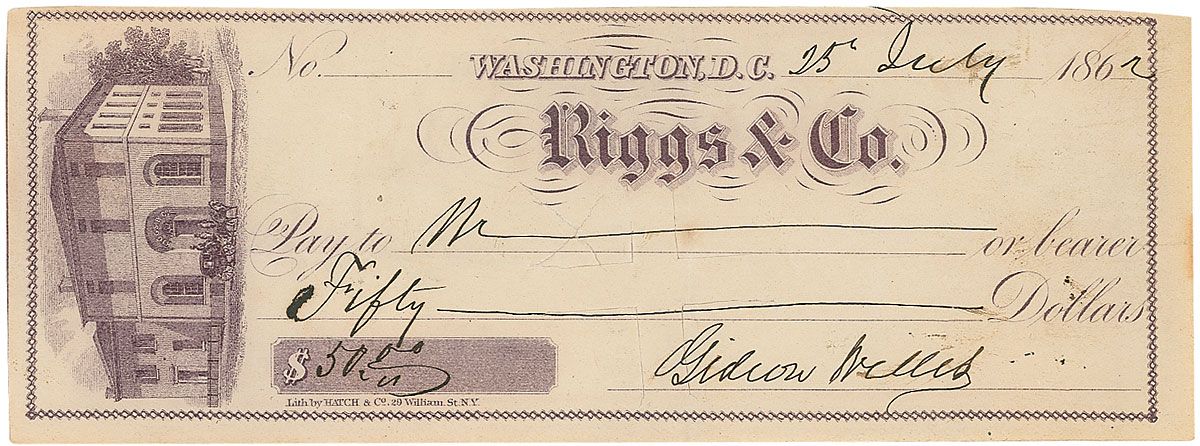 No. WASHINGTON, D.C. 25 July 1862
Riggs & Co.
Pay to or bearer
Fifty Dollars
$ 50.00 Gideon Welles
Lith by HATCH & Co. 29 William. St. N.Y.